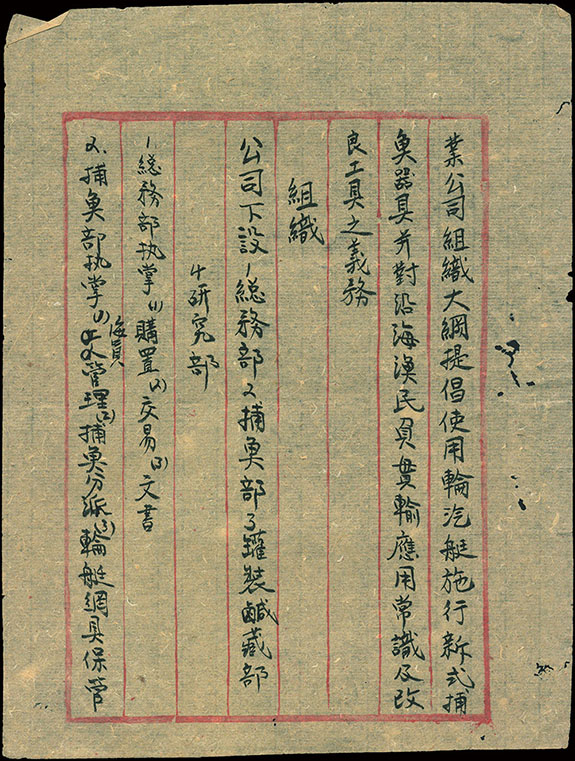 業公司組織大綱提倡使用輪汽艇施行新式捕
魚器具并對沿海漁民負貫輸應用常識及改
良工具之義務
組織
公司下設1總務部2捕魚部3罐裝鹹藏部
4研究部
1.總務部执掌(1)購置(2)交易(3)文書
2.捕魚部执掌(1)海員管理(2)捕魚分派(3)輪艇網具保管